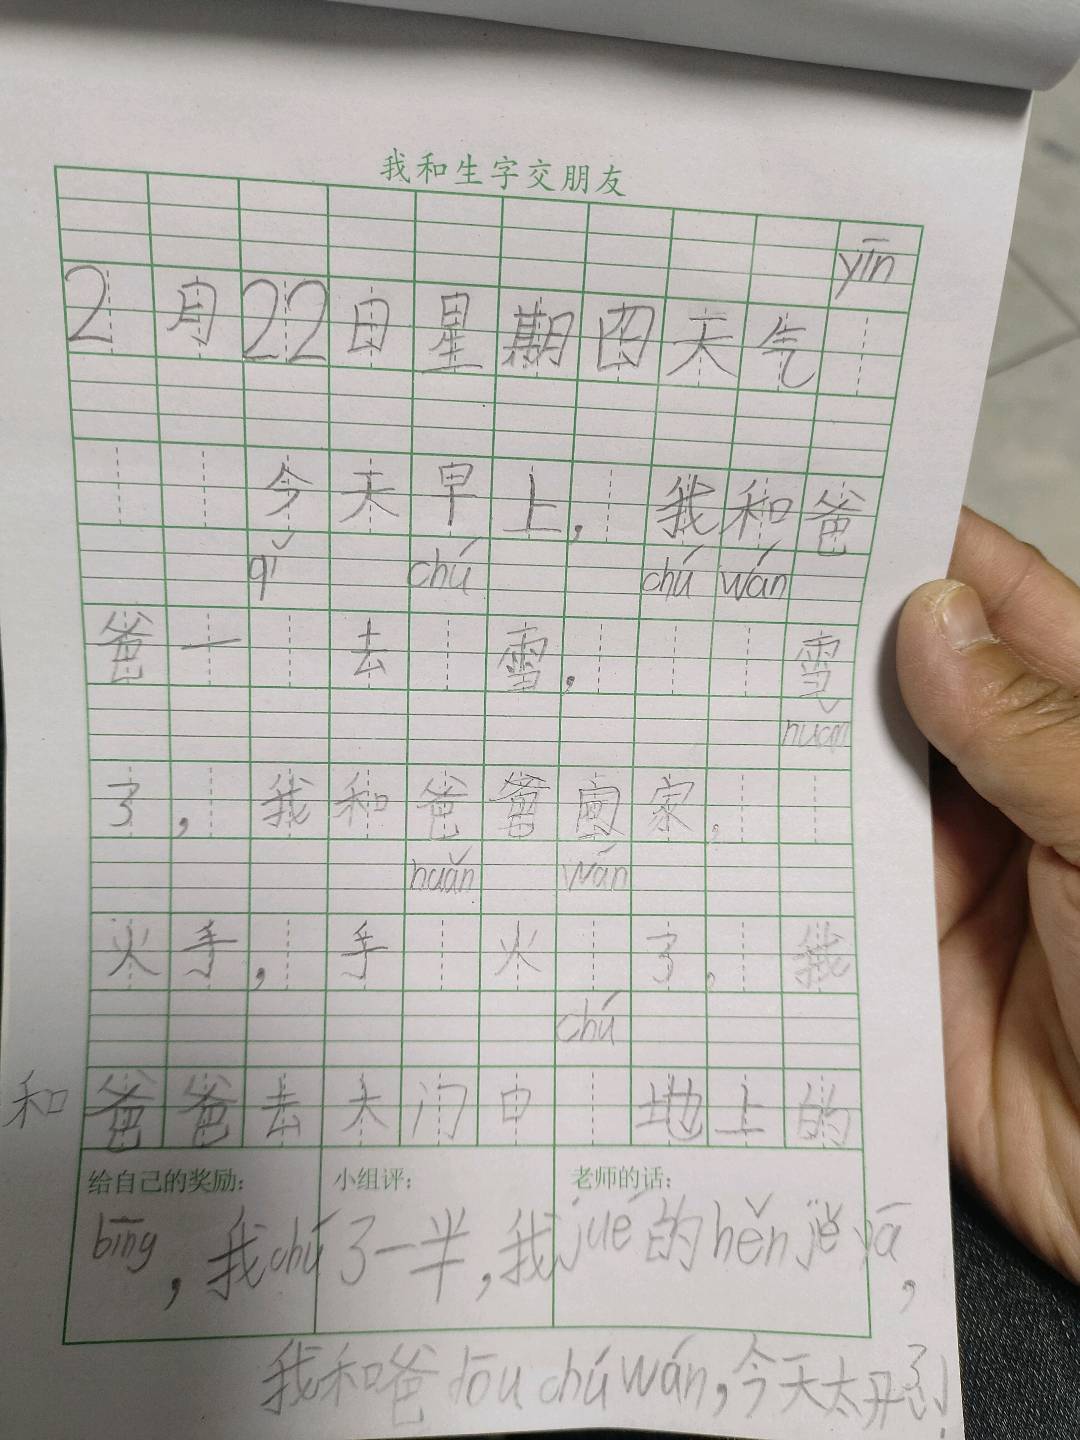 我和生字交朋友
yīn
2月22日星期四天气
今天早上,我和爸
qǐ chú chú wán
爸一去雪,雪
huán
了,我和爸爸回家,
huǎn wán
火手,手火了,我
chú
和爸爸去大门口地上的
给自己的奖励: 小组评: 老师的话:
bīng,我chú了一半,我jué的hěn jě yā,
我和爸dōu chú wán,今天太开心了!